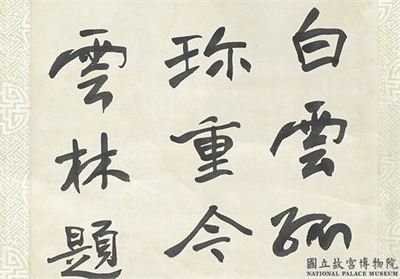 白雲孤
珎重今
雲林題
國立故宮博物院
NATIONAL PALACE MUSEUM